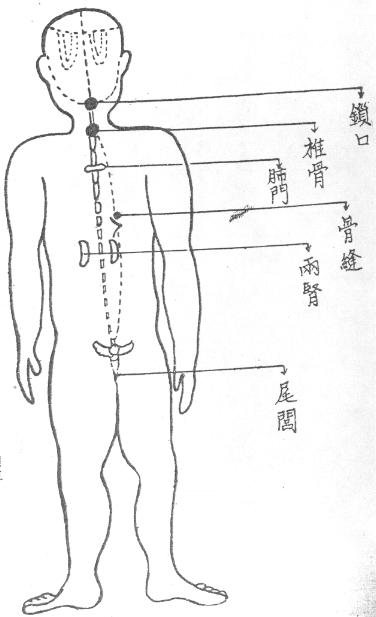 鎖口
椎骨
肺門
骨縫
兩腎
尾閭